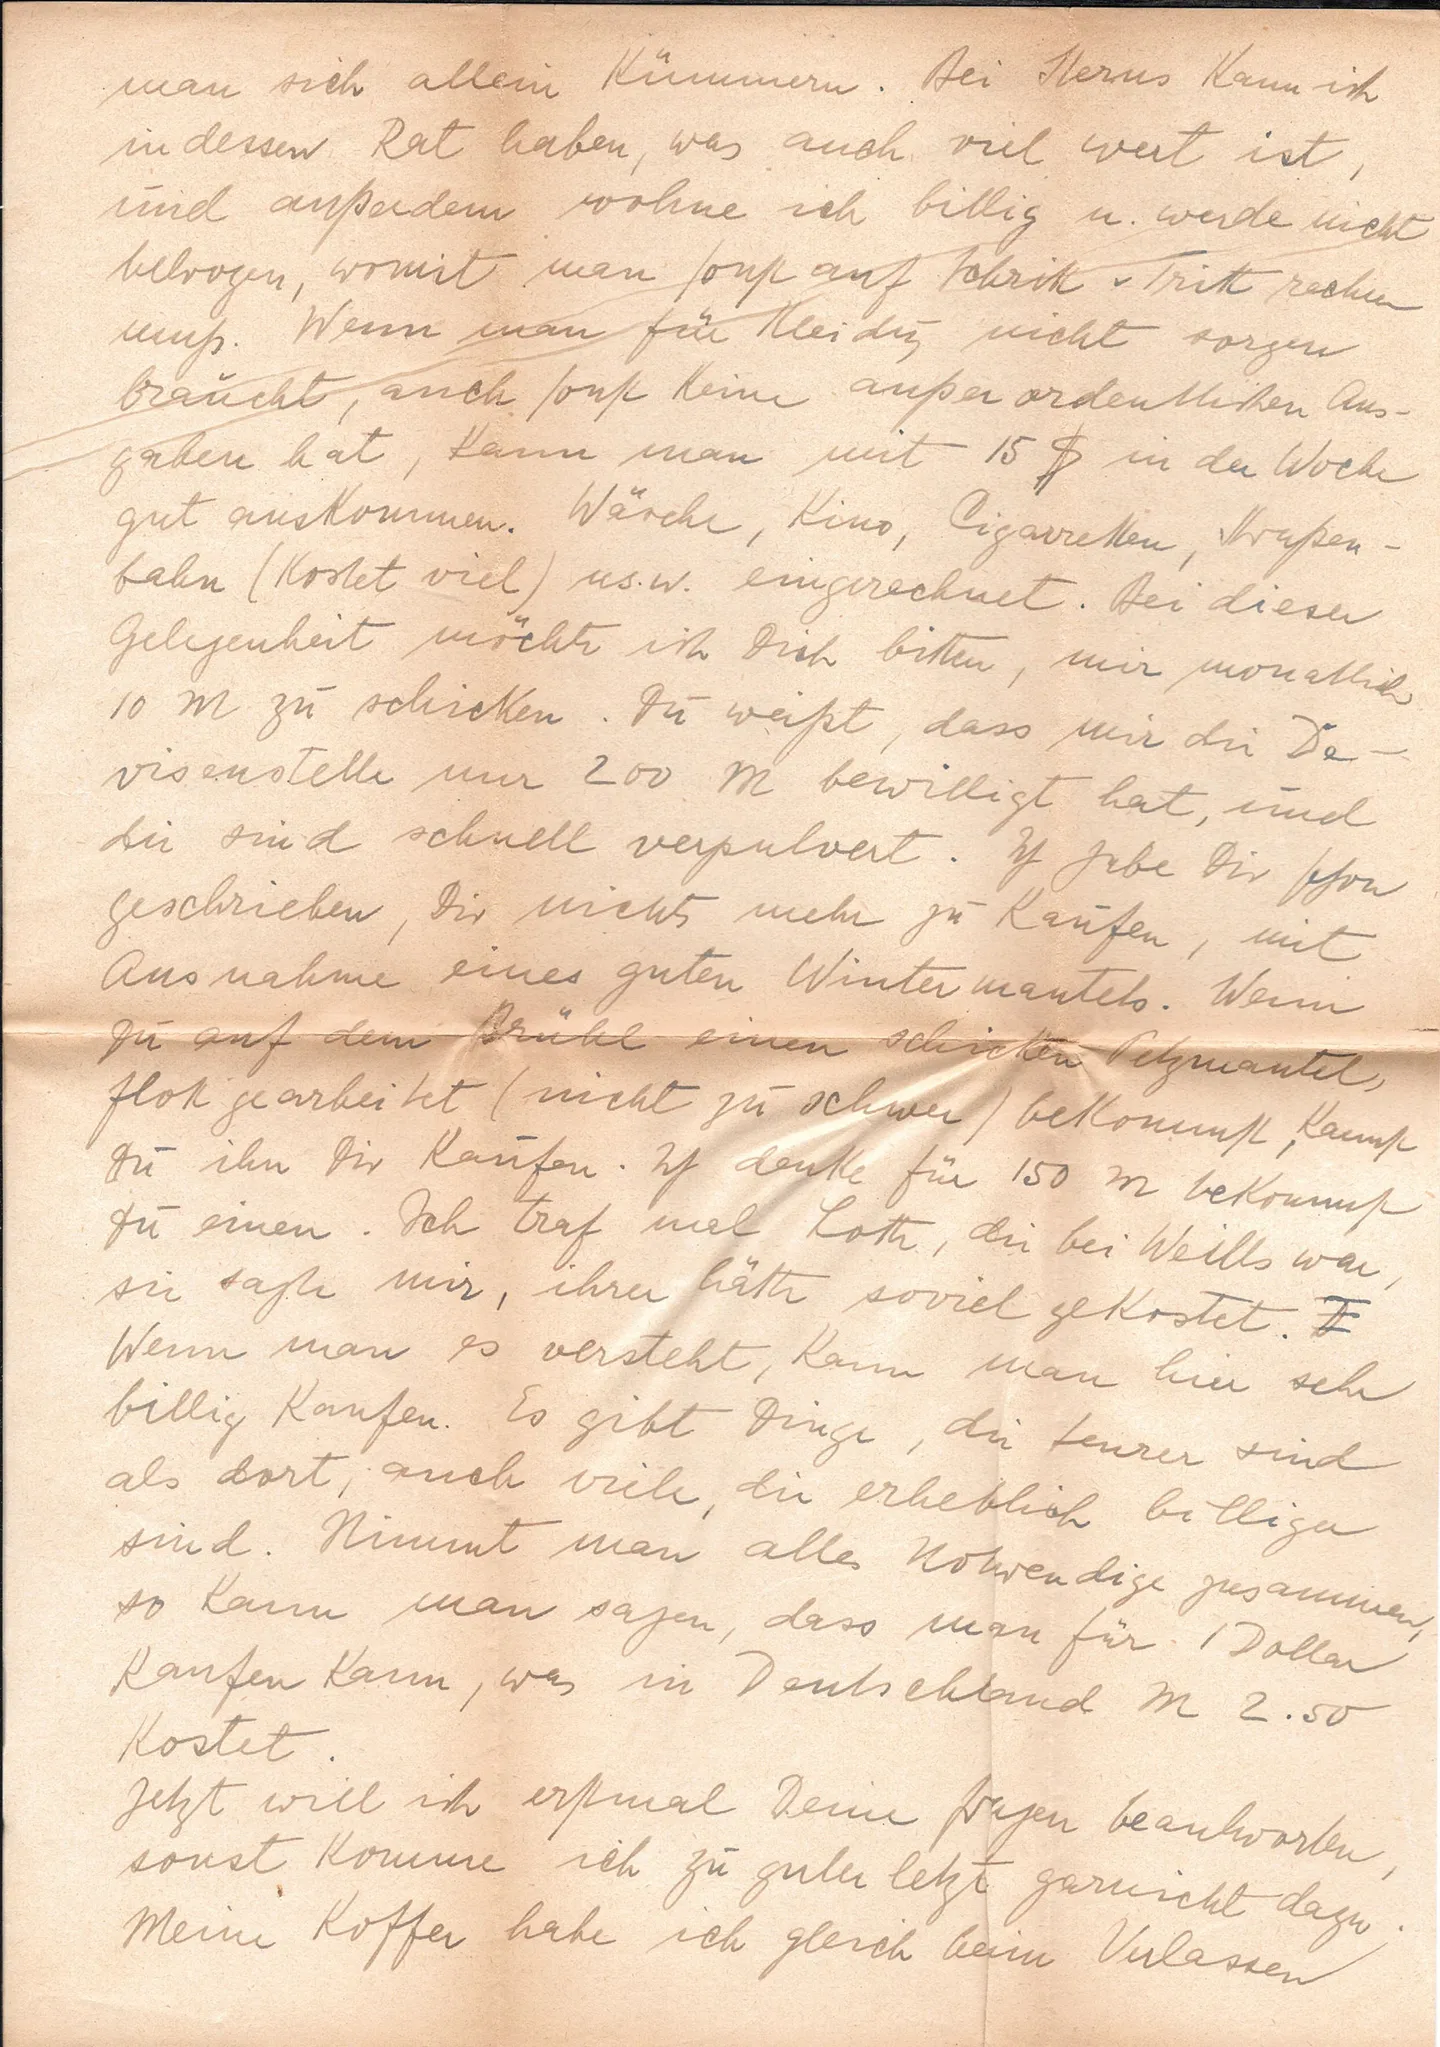 man sich allein kümmern. Bei Sterns kann ich
indessen Rat haben, was auch viel wert ist,
und außerdem wohne ich billig u. werde nicht
betrogen, womit man sonst auf Schritt u. Tritt rechnen
muß. Wenn man für Kleidg nicht sorgen
braucht, auch sonst keine außerordentlichen Aus-
gaben hat, kann man mit 15 $ in der Woche
gut auskommen. Wäsche, Kino, Cigaretten, Straßen-
bahn (kostet viel) u.s.w. eingerechnet. Bei dieser
Gelegenheit möchte ich Dich bitten, mir monatlich
10 M zu schicken. Du weißt, dass mir die De-
visenstelle nur 200 M bewilligt hat, und
die sind schnell verpulvert. Ich habe Dir schon
geschrieben, Dir nichts mehr zu kaufen, mit
Ausnahme eines guten Wintermantels. Wenn
Du auf dem Brühl einen schicken Pelzmantel,
flott gearbeitet (nicht zu schwer) bekommst, kannst
Du ihn Dir kaufen. Ich denke für 150 M bekommst
Du einen. Ich traf mal Lotte, die bei Weills war,
sie sagte mir, ihrer hätte soviel gekostet.
Wenn man es versteht, kann man hier sehr
billig kaufen. Es gibt Dinge, die teurer sind
als dort, auch viele, die erheblich billiger
sind. Nimmt man alles Notwendige zusammen,
so kann man sagen, dass man für 1 Dollar
kaufen kann, was in Deutschland M 2.50
kostet.
Jetzt will ich erstmal Deine Fragen beantworten,
sonst komme ich zu guter letzt garnicht dazu.
Meine Koffer habe ich gleich beim Verlassen